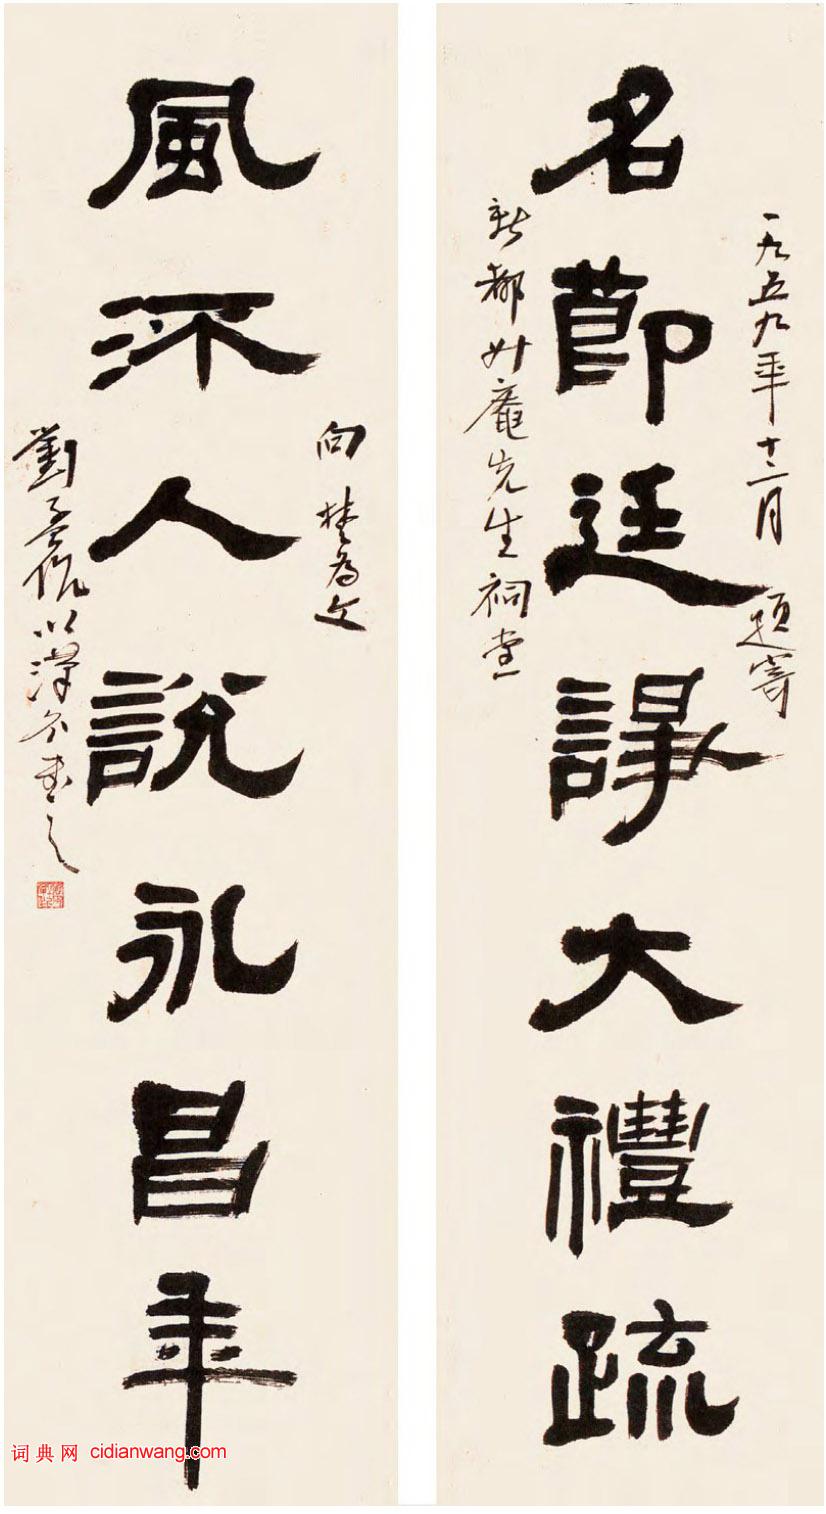 一九五九年十二月 題寄
名節廷諍大禮疏
新都升庵先生祠堂
向楚為文
風㳅人說永昌年
劉孟伉以漢分書之
词典网 cidianwang.com